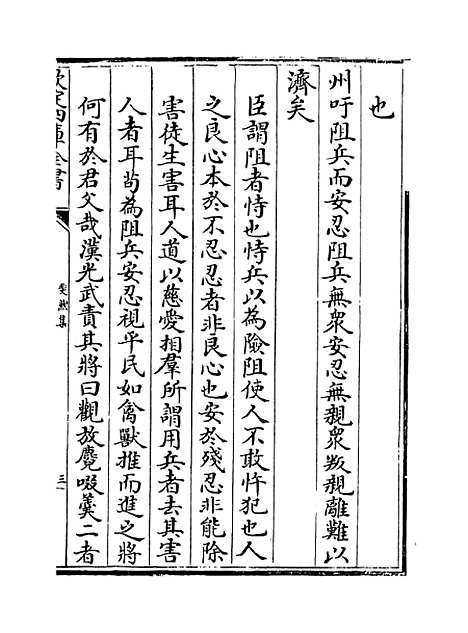 也
州吁阻兵而安忍阻兵無衆安忍無親衆叛親離難以
濟矣
臣謂阻者恃也恃兵以為險阻使人不敢忤犯也人
之良心本於不忍忍者非良心也安於殘忍非能除
害徒生害耳人道以慈愛相羣所謂用兵者去其害
人者耳苟為阻兵安忍視平民如禽獸推而進之將
何有於君父哉漢光武責其將曰觀放麑啜羹二者
欽定四庫全書
斐然集
三